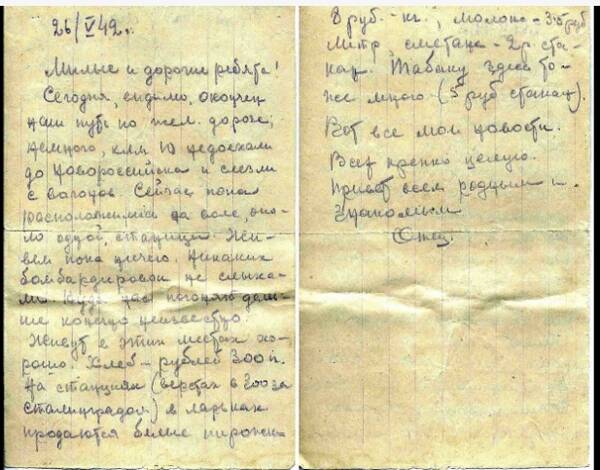 26/V 42 г.
Милые и дорогие ребята!
Сегодня, видимо, окончен
наш путь по жел. дороге;
немного, клм 10 недоехали
до Новороссийска и слезли
с вагонов. Сейчас пока
расположились на воле, око-
ло одной, станицы. Жи-
вем пока ничего. Никаких
бомбардировок не слыха-
ли. Куда нас погонят даль-
ше конечно неизвестно.
Живут в этих местах хо-
рошо. Хлеб – рублей 300 п.
На станциях (верстах в 200 за
Сталинградом) в ларьках
продаются белые пирожки
8 руб. - кг., молоко - 35 руб
литр, сметана - 2 р. ста-
кан. Табаку здесь то-
же много (5 руб стакан).
Вот все мои новости.
Всех крепко целую.
Привет всем родным и
знакомым
Отец.